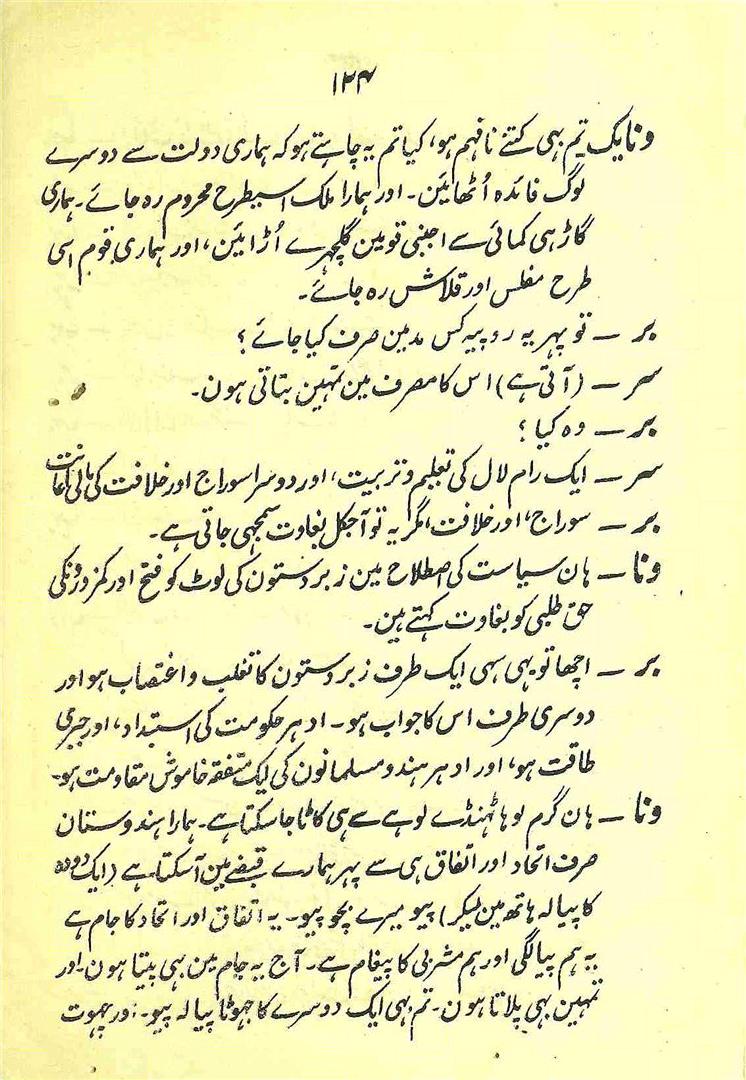 ۱۲۴
ونایک تم بہی کتنے نافہم ہو، کیا تم یہ چاہتے ہو کہ ہماری دولت سے دوسرے
لوگ فائدہ اُٹھائین۔ اور ہمارا ملک اسیطرح محروم رہ جائے۔ ہماری
گاڑہی کمائی سے اجنبی قومین گلچہرے اُڑائین، اور ہماری قوم اسی
طرح مفلس اور قلاش رہ جائے۔
بر ــ تو پہر یہ روپیہ کس مدمین صرف کیا جائے؟
سر ــ (آتی ہے) اس کا مصرف مین تمہین بتاتی ہون۔
بر ــ وہ کیا؟
سر ــ ایک رام لال کی تعلیم و تربیت، اور دوسرا سوراج اور خلافت کی مالی اعانت
بر ــ سوراج، اور خلافت، مگر یہ تو آجکل بغاوت سمجہی جاتی ہے۔
ونا ــ ہان سیاست کی اصطلاح مین زبردستون کی لوٹ کو فتح اور کمزورونکی
حق طلبی کو بغاوت کہتے ہین۔
بر ــ اچھا تو یہی سہی ایک طرف زبردستون کا تغلب و اغتصاب ہو اور
دوسری طرف اس کا جواب ہو۔ ادہر حکومت کی استبداد، اور جبری
طاقت ہو، اور ادہر ہندو مسلمانون کی ایک متفقہ خاموش مقاومت ہو۔
ونا ــ ہان گرم لوہا ٹہنڈے لوہے سے ہی کاٹا جاسکتا ہے۔ ہمارا ہندوستان
صرف اتحاد اور اتفاق ہی سے پہر ہمارے قبضے مین آسکتا ہے (ایک دودہ
کا پیالہ ہاتھ مین لیکر) پیو میرے بچو پیو۔ یہ اتفاق اور اتحاد کا جام ہے
یہ ہم پیالگی اور ہم مشربی کا پیغام ہے۔ آج یہ جام مین بہی پیتا ہون۔ اور
تمہین بہی پلاتا ہون۔ تم بہی ایک دوسرے کا جہوٹا پیالہ پیو۔ اور چہوت